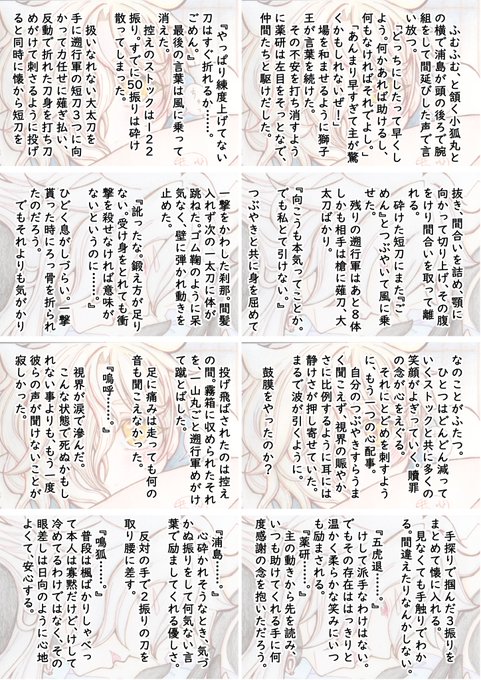 ふむふむ、と頷く小狐丸と
の横で浦島が頭の後ろで腕
組をして間延びした声で言
い放つ。
「どっちにしたって早くし
よう。何かあれば助けるし、
何もなければそれでよし。」
「あんまり早すぎて主が驚
くかもしれないぜ！」
場を和ませるように獅子
王が言葉を続けた。
その不安を打ち消すよう
に薬研は左目をそっとなで、
仲間たちと駆けだした。
『やっぱり練度上げてない
刀はすぐ折れるか……。
ごめん。』
最後の言葉は風に乗って
消えた。
控えのストックは122
振り。すでに50振りは砕け
散ってしまった。
扱いなれない大太刀を
手に遡行軍の短刀3つに向
かって力任せに薙ぎ払い、
反動で折れた刀身を打ち刀
めがけて刺さるように投げ
ると同時に懐から短刀を
抜き、間合いを詰め、顎に
向かって切り上げ、その腹
をけり間合いを取って離
れる。
砕けた短刀にまた『ご
めん』とつぶやいて風に乗
せた。
『向こうも本気ってことか。
でも私とて引けない。』
残りの遡行軍はあと8体
しかも相手は槍に薙刀、大
太刀ばかり。
つぶやきと共に身を屈めて
一撃をかわした刹那。間髪
入れず次の一太刀に体が
跳ねた。ゴム鞠のように呆
気なく、壁に弾かれ動きを
止めた。
『訛ったな。鍛え方が足り
ない。受け身をとれても衝
撃を殺せなければ意味が
ないというのに……。』
ひどく息がしづらい。一撃
貰った時にろっ骨を折られ
たのだろう。
でもそれよりも気がかり
なのことがふたつ。
ひとつはどんどん減って
いくストックと共に多くの
笑顔がよぎっていく。贖罪
の念が心をえぐる。
それにとどめを刺すよう
に、もう一つの心配事。
自分のつぶやきすらうま
く聞こえず、視界の賑やか
さに比例するように耳には
静けさが押し寄せていた。
まるで波が引くように。
鼓膜をやったのか？
投げ飛ばされたのは控え
の間。霧箱に収められたそれ
を、一山丸ごと遡行軍めがけ
て蹴とばした。
足に痛みは走っても何の
音も聞こえなかった。
『嗚呼……。』
視界が涙で滲んだ。
こんな状態で死ぬかもし
れない事よりも、もう一度
彼らの声が聞けないことが
寂しかった。
手探りで掴んだ3振りを
まとめて懐に入れる。
「見なくても手触りでわか
る。間違えたりなんかしない。
『五虎退……。』
けして派手なわけはない。
でもその存在ははっきりと
温かく柔らかな笑みにいつ
も励まされる。
『薬研……。』
主の動きから先を読み、
いつも助けてくれる手に何
度感謝の念を抱いただろう。
『浦島……。』
心砕かれそうなとき、気づ
かぬ振りをして何気ない言
葉で励ましてくれる優しさ。
反対の手で2振りの刀を
取り腰に差す。
『鳴狐……。』
普段は楓ばかりしゃべっ
て本人は寡黙だけど、けして
冷めてるわけではなく、その
眼差しは日向のように心地
よくて、安心する。